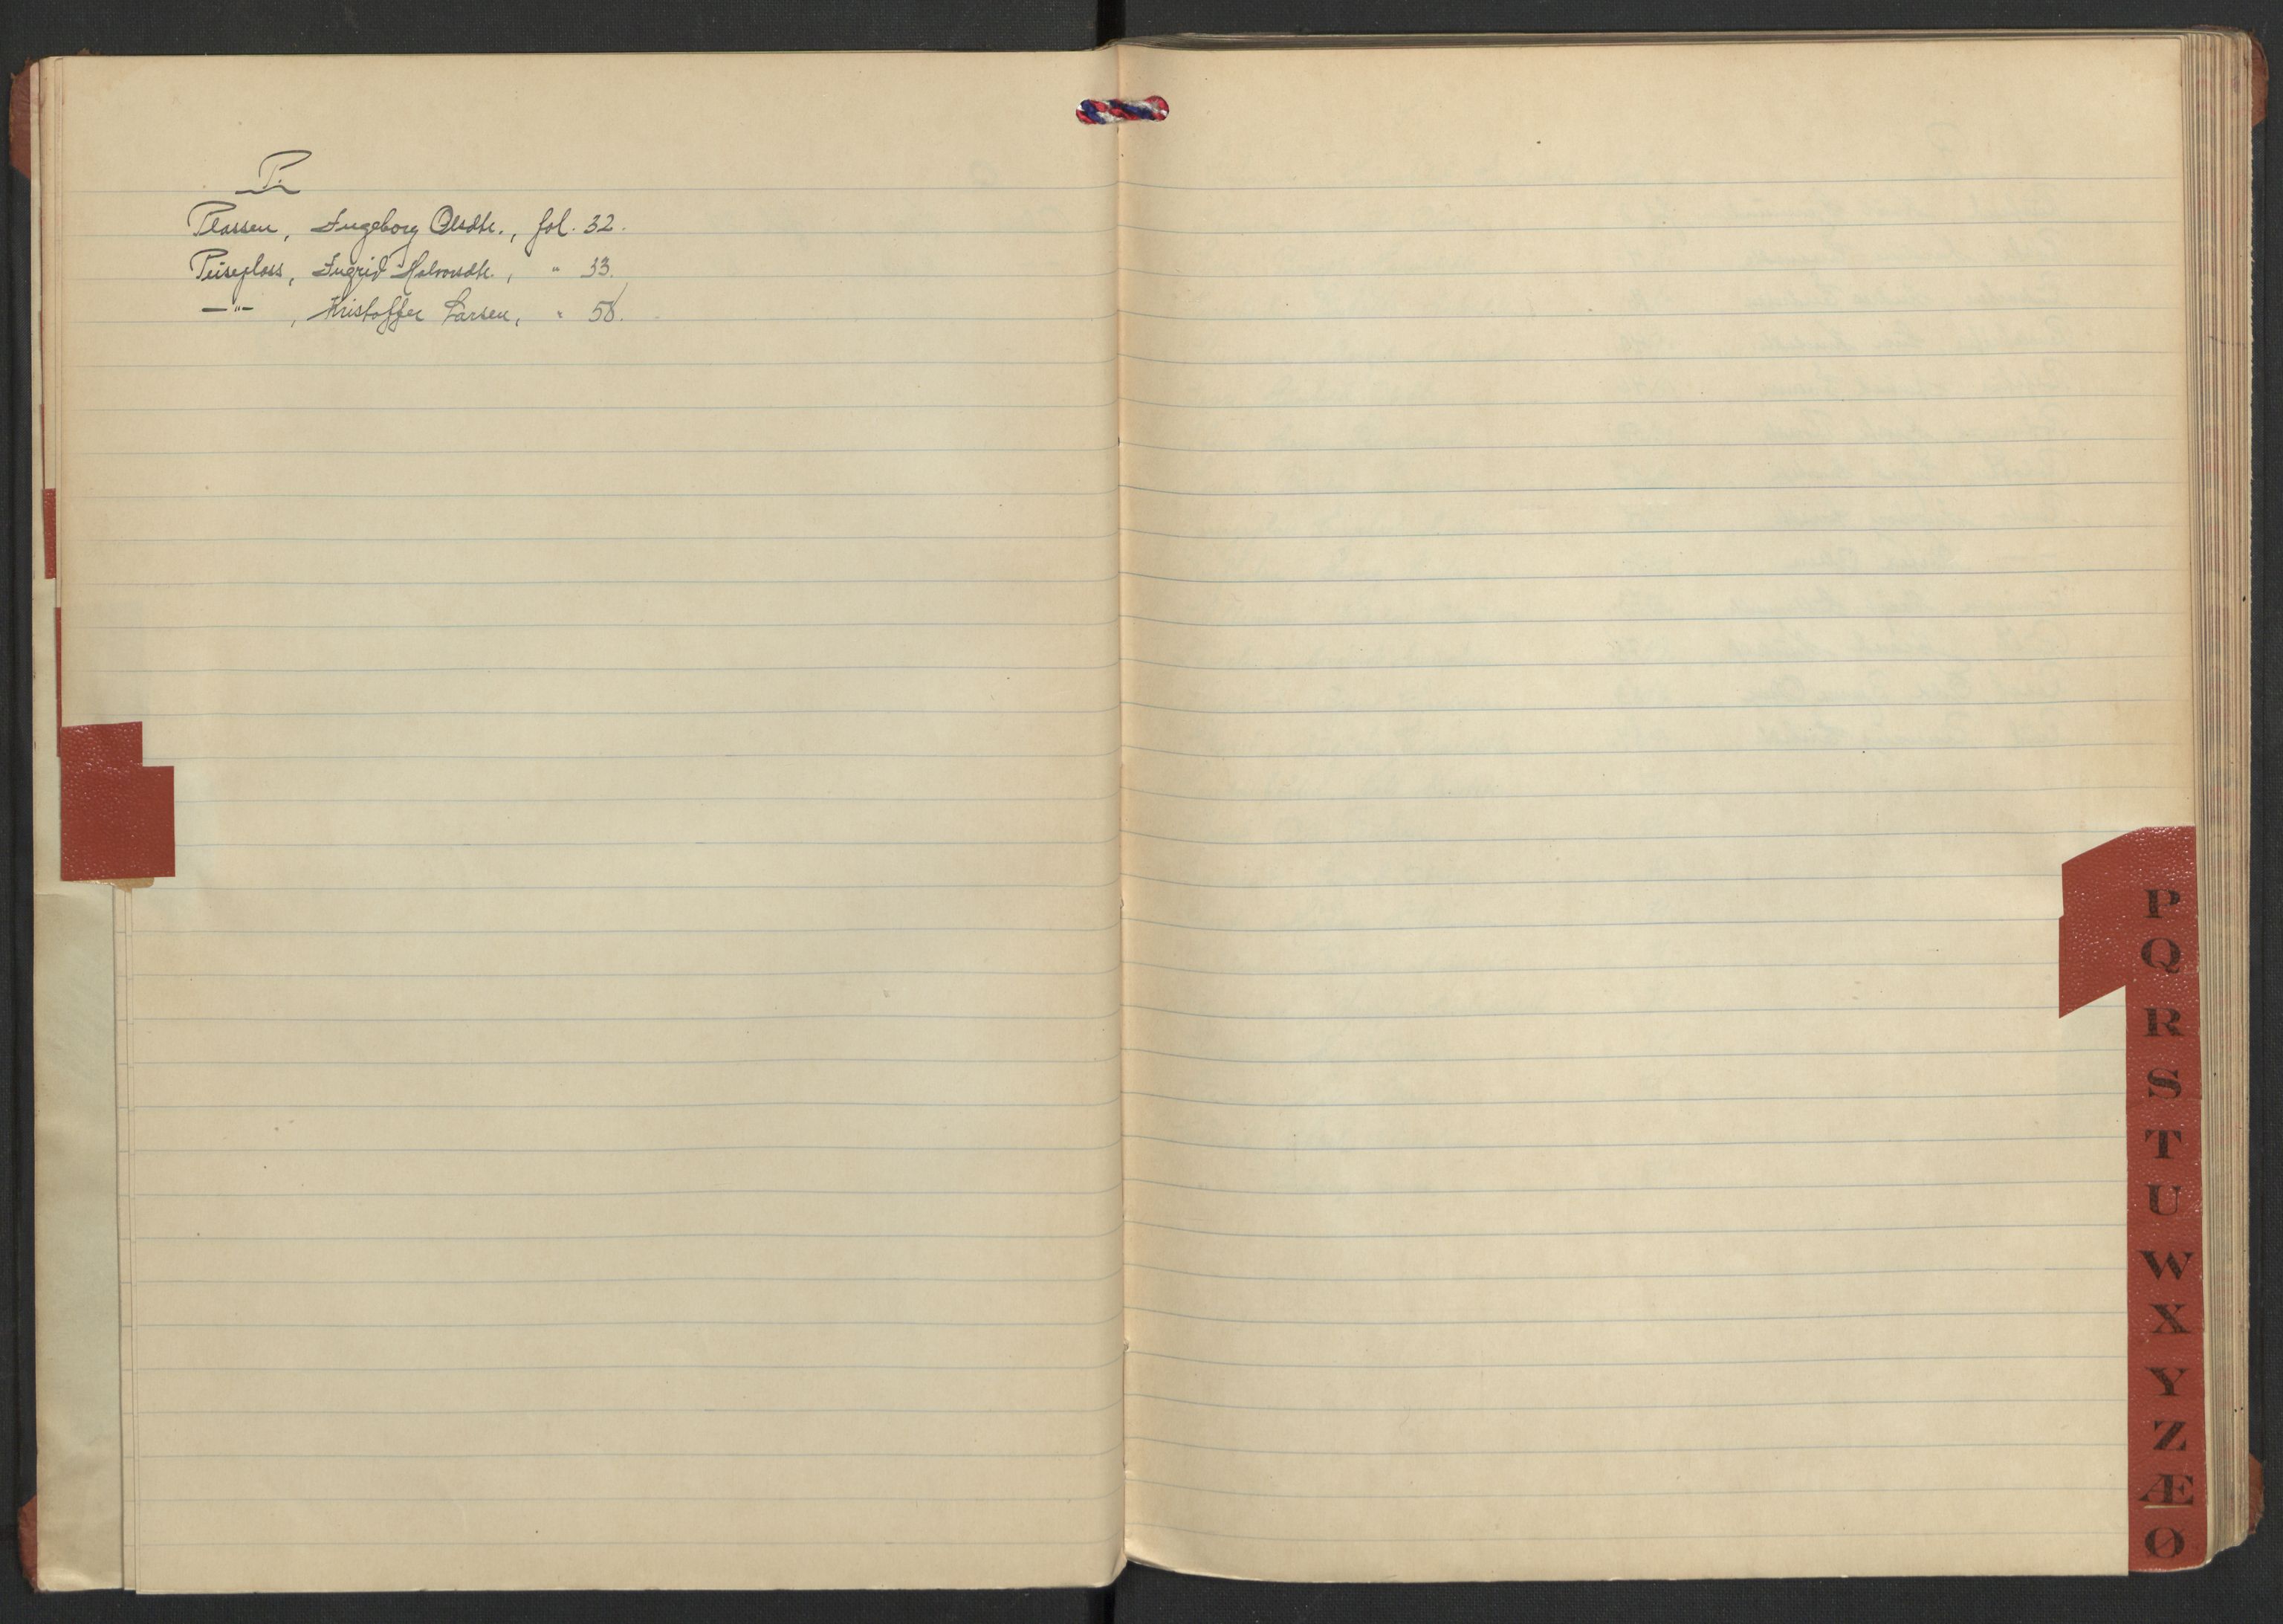 P.
Plassen, Ingeborg Olsdtr., fol. 32.
Peiseplass, Ingrid Halvorsdtr., " 33.
—"— , Kristoffer Larsen, " 58.
P
Q
R
S
T
U
W
X
Y
Z
Æ
Ø